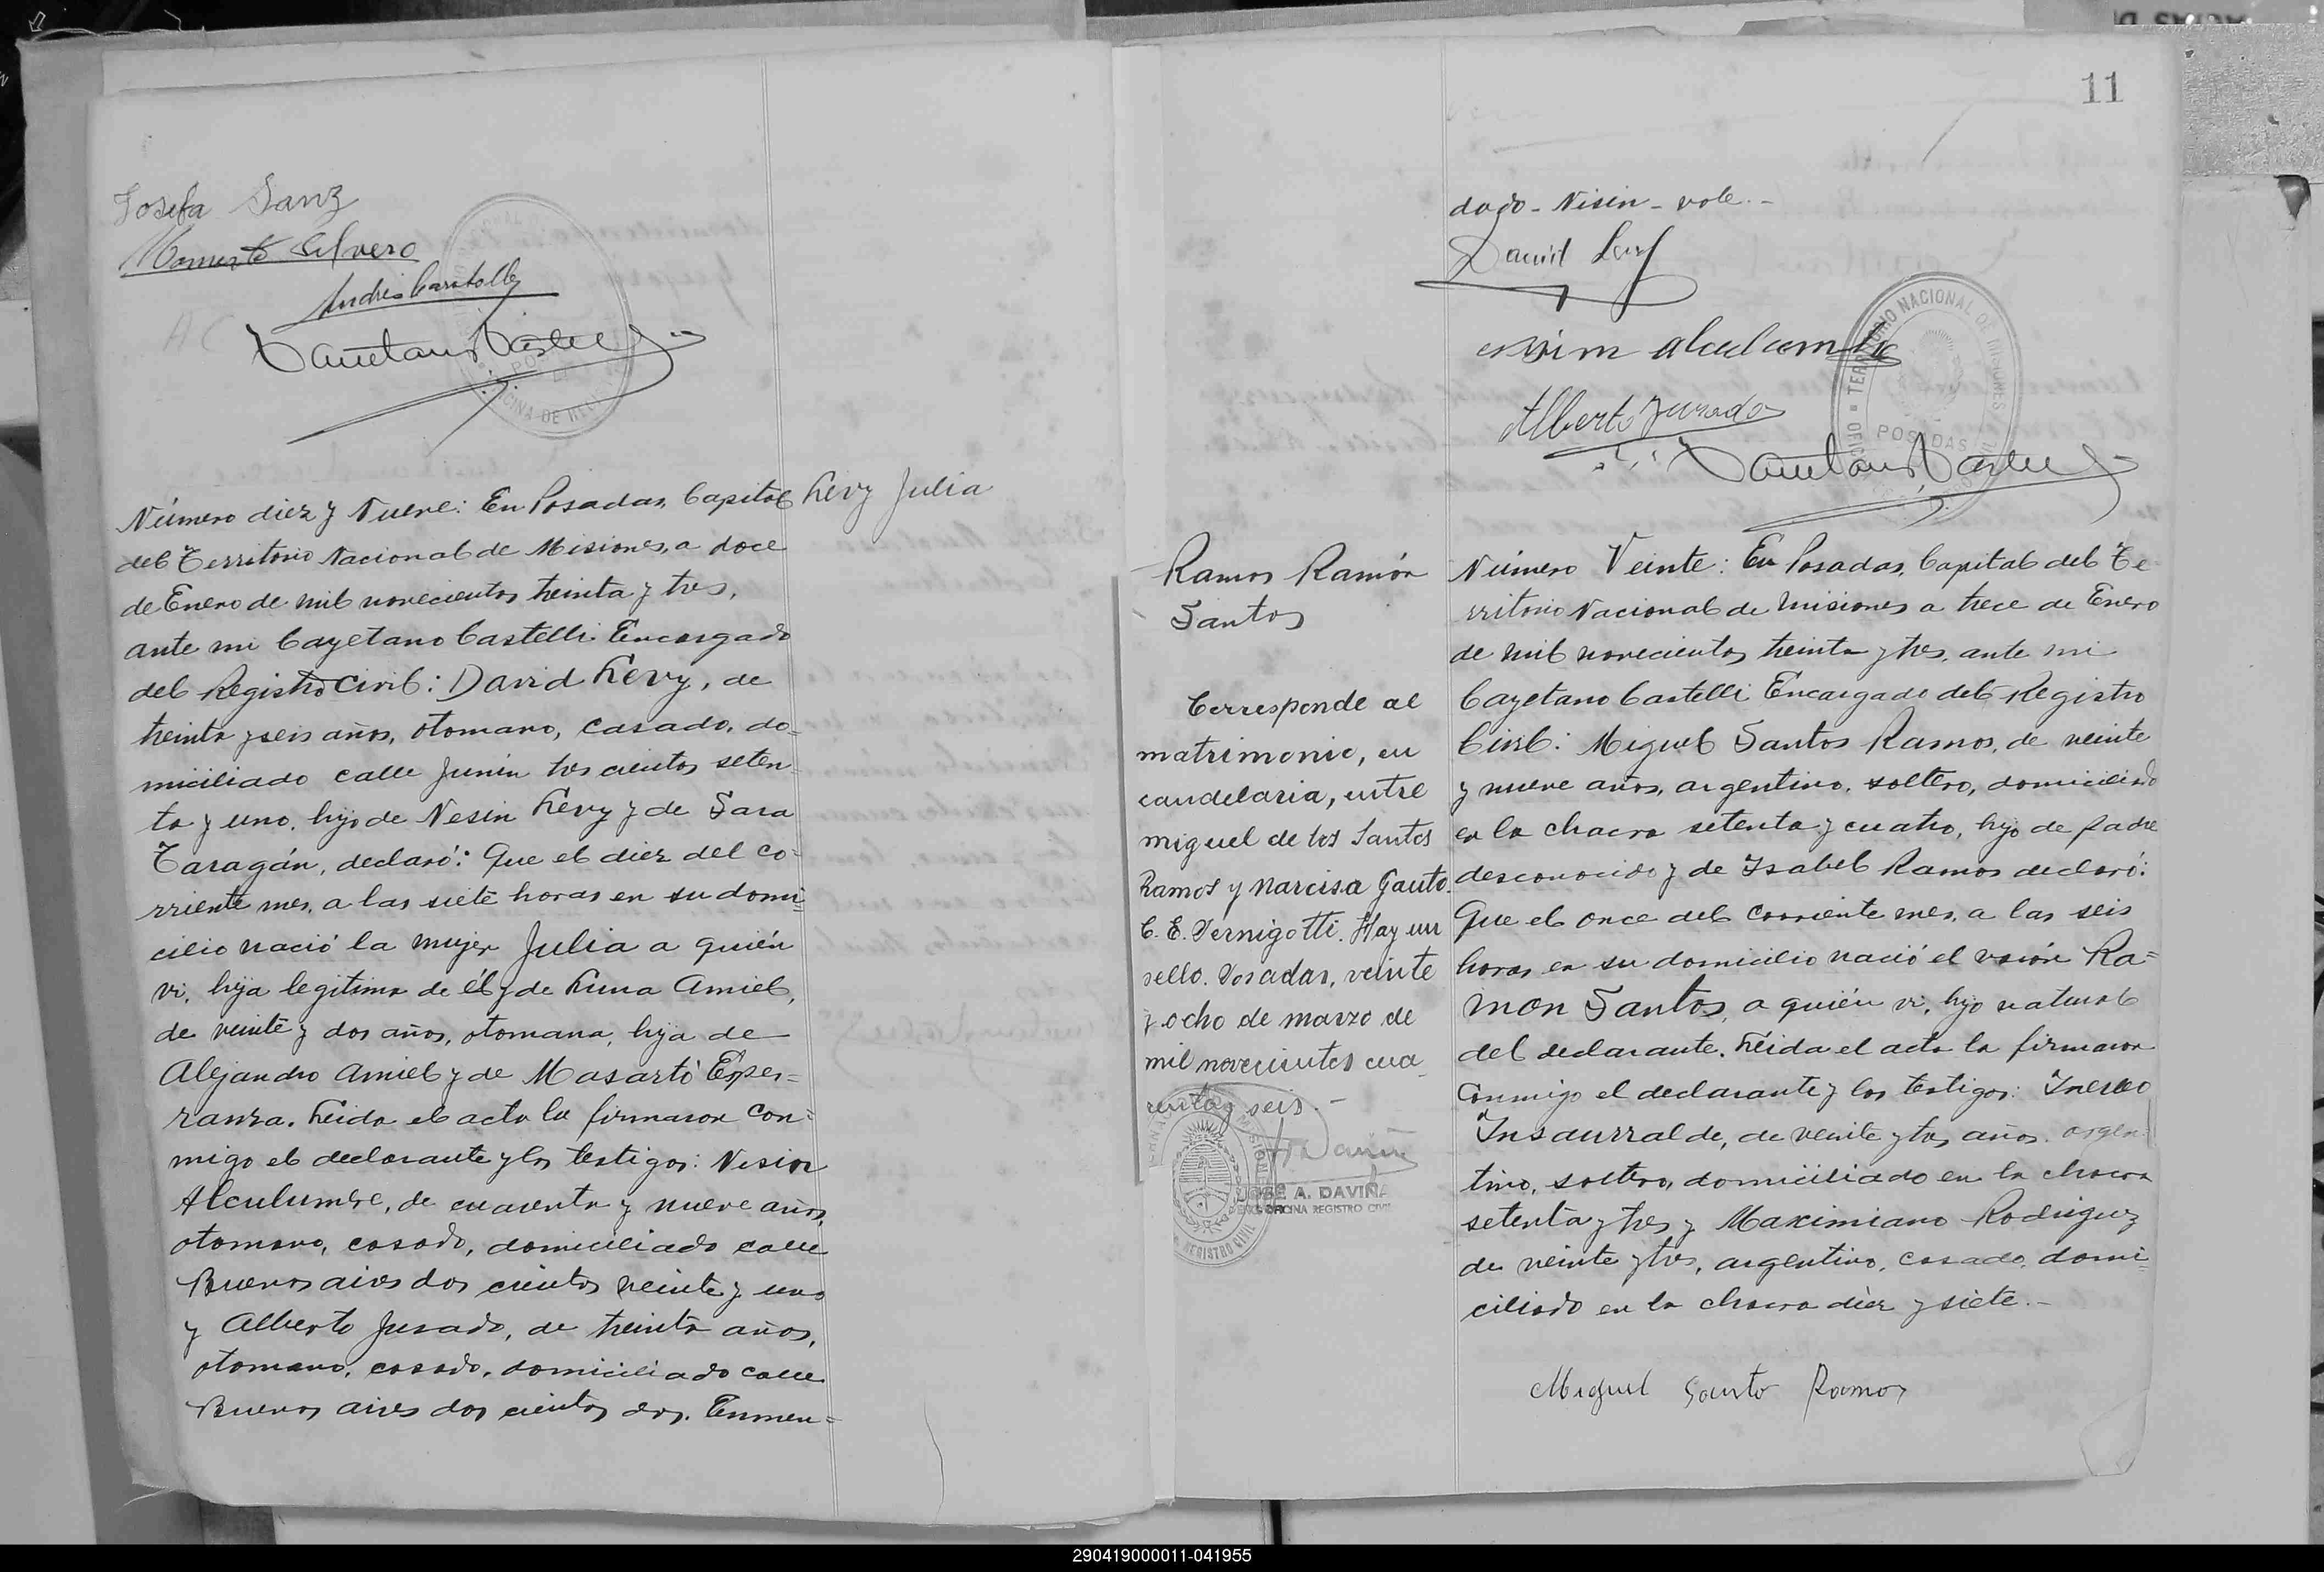 Josefa Sanz
Silvero
Número diez y Nueve: En Posadas, Capital
Levy Julia
del Territorio Nacional de Misiones, a doce
de Enero de mil novecientos treinta y tres,
ante mi Cayetano Castelli Encargado
del Registro Civil: David Levy, de
treinta y seis años, otomano, casado, do=
miciliado calle Junin tres cientos seten=
ta y uno, hijo de Nesin Levy y de Sara
Taragán, declaró: Que el diez del co=
rriente mes, a las siete horas en su domi=
cilio nació la mujer Julia a quién
vi, hija legitima de él y de Luna Amiel,
de veinte y dos años, otomana, hija de
Alejandro Amiel y de Masartó Espe=
ranza. Leida el acta la firmaron con=
migo el declarante y los testigos: Nisin
Alculumbre, de cuarenta y nueve años,
otomano, casado, domiciliado calle
Buenos aires dos cientos veinte y uno
y Alberto Jurado, de treinta años,
otomano, casado, domiciliado calle
Buenos aires dos cientos dos. Enmen=
11
dado - Nisin - vale. -
David Levy
Alberto Jurado
TERRITORIO NACIONAL DE MISIONES
POSADAS
Ramos Ramón
Santos
Corresponde al
matrimonio, en
candelaria, entre
miguel de los Santos
Ramos y Narcisa Gauto.
C. E. Pernigotti. Hay un
sello. Posadas, veinte
y ocho de marzo de
mil novecientos cua
renta y seis. -
JOSÉ A. DAVIÑA
OFICINA REGISTRO CIVIL
Número Veinte: En Posadas, Capital del Te
rritorio Nacional de Misiones a trece de Enero
de mil novecientos treinta y tres, ante mi
Cayetano Castelli Encargado del Registro
Civil: Miguel Santos Ramos, de veinte
y nueve años, argentino, soltero, domiciliado
en la chacra setenta y cuatro, hijo de padre
desconocido y de Isabel Ramos declaró:
Que el once del corriente mes, a las seis
horas en su domicilio nació el varón Ra=
mon Santos, a quién vi, hijo natural
del declarante. Leida el acta la firmaron
conmigo el declarante y los testigos:
Insaurralde, de veinte y tres años, argen=
tino, soltero, domiciliado en la chacra
setenta y tres y Maximiano Rodriguez
de veinte y tres, argentino, casado, domi=
ciliado en la chacra diez y siete. -
Miguel Santo Ramos
290419000011-041955